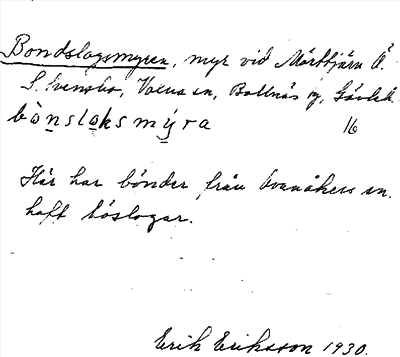 Bondslogsmyren, myr vid Mårtstjärn Å.
S. Svensbo, Voxna sn, Bollnäs fg, Gävleb.
bònsloksmýra 16
Här har bönder från Ovanåkers sn
haft höslogar.
Erik Eriksson 1930.